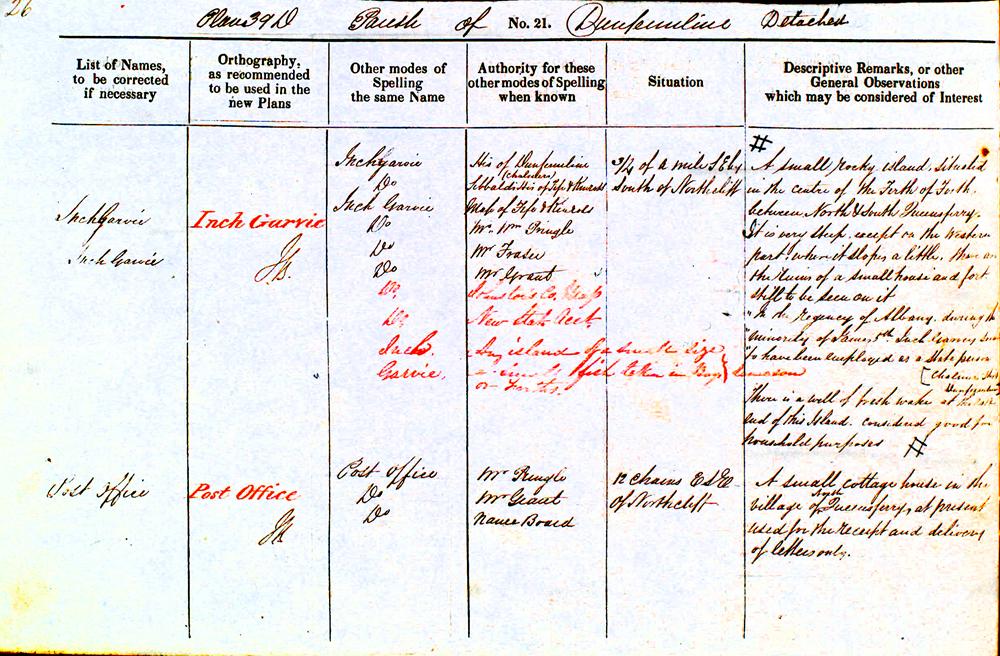 26
Plan 39 D Parish of No. 21. Dunfermline Detached
List of Names, to be corrected if necessary
Orthography, as recommended to be used in the new Plans
Other modes of Spelling the same Name
Authority for these other modes of Spelling when known
Situation
Descriptive Remarks, or other General Observations which may be considered of Interest
InchGarvie
Inch Garvie
Inch Garvie
Inchgarvie
Do
Inch Garvie
Do
Do
Do
Do
Do
Inch.
Garvie.
His of Dunfermline
(Chalmers)
Sibbalds His of Fife & Kinross
Map of Fife & Kinross
Mr. Wm Pringle
Mr Fraser
Mr Grant
Johnston's Co. Map
New Stat. Acct.
Any island of a small size
fish taken in Bays
or Firths.
Jameson
3/4 of a mile S.E by
South of Northcliff
#
A small rocky island, situated
in the centre of the Firth of Forth.
between North & South Queensferry.
It is very steep except on the Western
part where it slopes a little, there are
the ruins of a small house and fort
still to be seen on it
"In the regency of Albany, during the
"minority of James 5th Inch Garvey
"to have been employed as a state prison
[Chalmers His
Dunfermline
There is a well of fresh water at the
end of this Island. Considered good for
household purposes #
Post Office
Post Office
Post Office
Do
Do
Mr Pringle
Mr Grant
Name Board
12 chains E.S.E.
of Northcliff
A small cottage house in the
village of North Queensferry, at present
used for the receipt and delivery
of letters only.